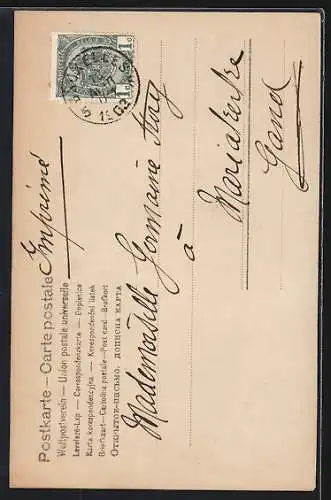 Postkarte — Carte postale
Weltpostverein — Union postale universelle
Levelező-Lap — Correspondenzkarte — Dopisnice
Karta korespondencyjna — Korespondenční lístek
Briefkaart—Cartolina postale—Post card—Brefkort
ОТКРЫТОЕ-ПИСЬМО, ДОПИСНА КАРТА
Imprimé
BRUXELLES
1903
1c 1c
Mademoiselle Germaine
à
Mariakerke
Gand